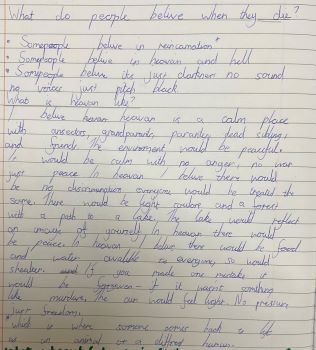 What do people belive when they die?
• Somepeople belive in reincarnation*
• Somepeople belive in heavan and hell
• Somepeople belive its just darkness no sound
no voices just pitch black
What is heavan like?
I belive heavan is a calm place
with ansectors, grandparents, parants, dead siblings
and friends. The enviroment would be peaceful.
It would be calm with no anger, no war
just peace. In heavan I belive there would
be no discrimination everyone would be treated the
same. There would be light coulors and a forest
with a path to a lake. The lake would reflect
an image of yourself. In heavan there would
be peace. In heavan I belive there would be food
and water avalible to everyone, so would
shealter. If you made one mistake it
would be forgiven if it wasn't somthing
like murdure. The air would feel light. No pressure,
just freedom.
* which is where someone comes back to life
as an animal or a diffrent human.